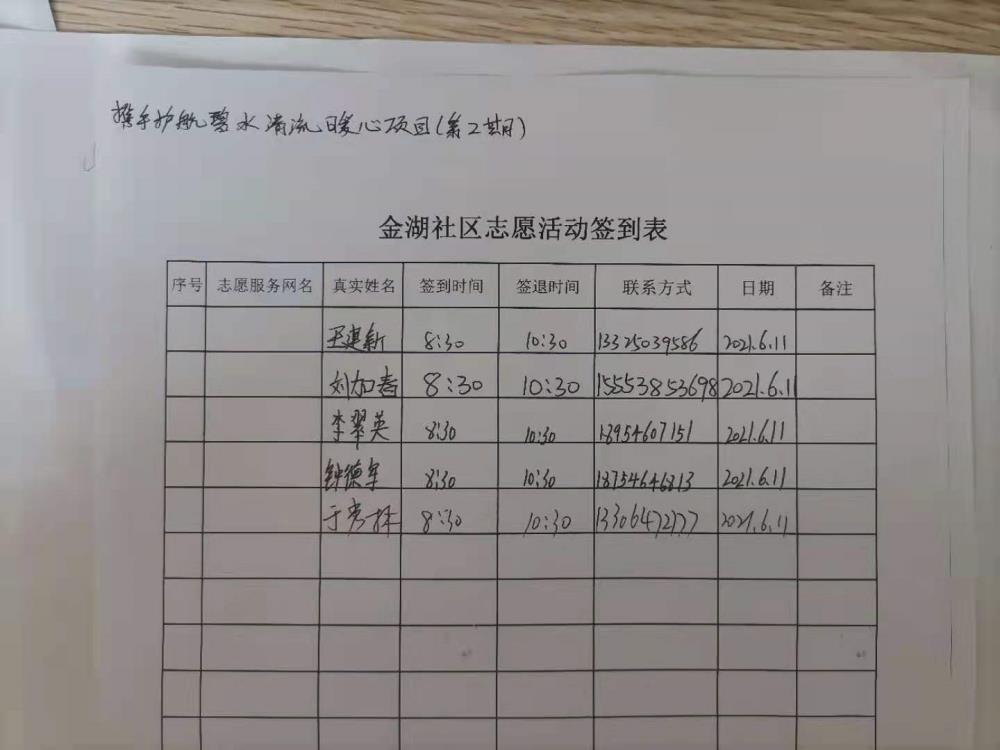 携手护航碧水清流暖心项目(第2期)
金湖社区志愿活动签到表
序号 志愿服务网名 真实姓名 签到时间 签退时间 联系方式 日期 备注
王建新 8:30 10:30 13325039586 2021.6.11
刘加春 8:30 10:30 15553853698 2021.6.11
李翠英 8:30 10:30 13954607151 2021.6.11
钟德军 8:30 10:30 18754646813 2021.6.11
于秀林 8:30 10:30 13306472177 2021.6.11